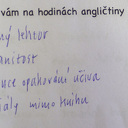 vám na hodinách angličtiny
ný lektor
anitost
uce opakování učiva
iály mimo knihu